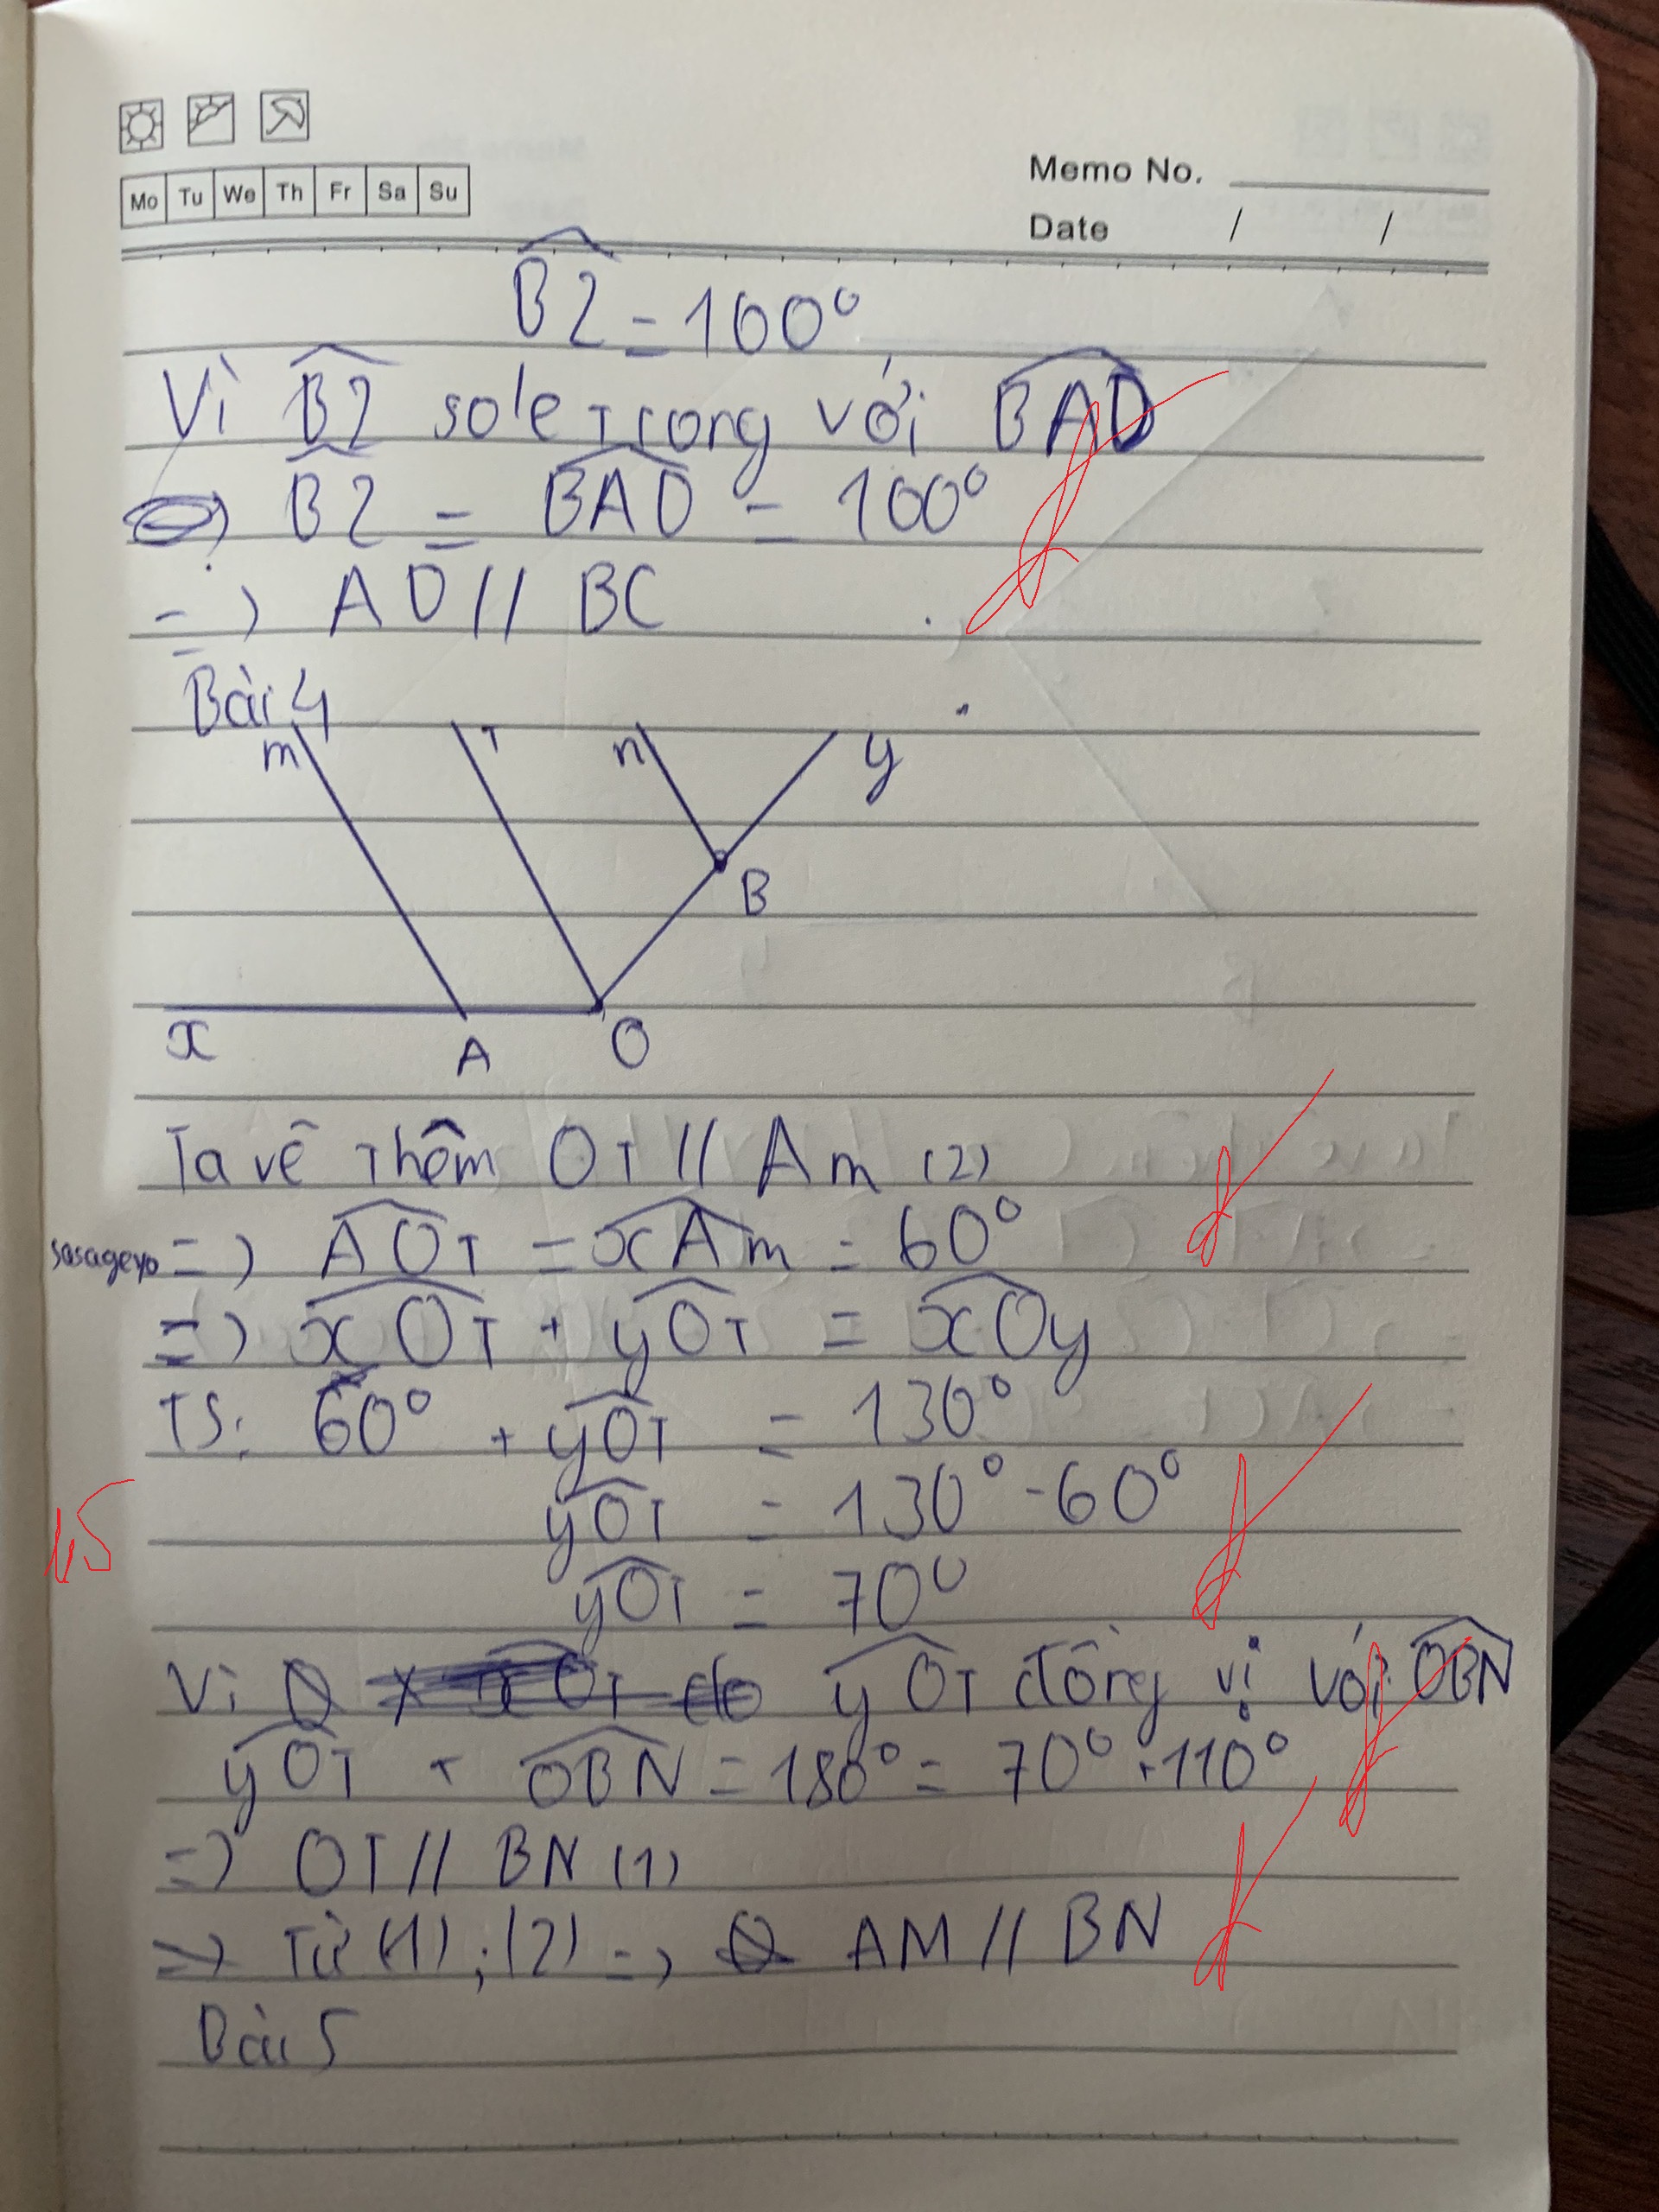 Mo Tu We Th Fr Sa Su
Memo No.
Date / /
B2 = 100°
Vì B2 sole trong với BAD
=) B2 = BAD = 100°
=) AD // BC
Bài 4
m T n y
B
x A O
Ta vẽ thêm OT // Am (2)
sasageyo =) AOT = xAm = 60°
=) xOT + yOT = xOy
TS: 60° + yOT = 130°
yOT = 130° - 60°
1,5
yOT = 70°
Vì yOT đồng vị với OBN
yOT + OBN = 180° = 70° + 110°
=) OT // BN (1)
=) Từ (1) ; (2) =) AM // BN
Bài 5